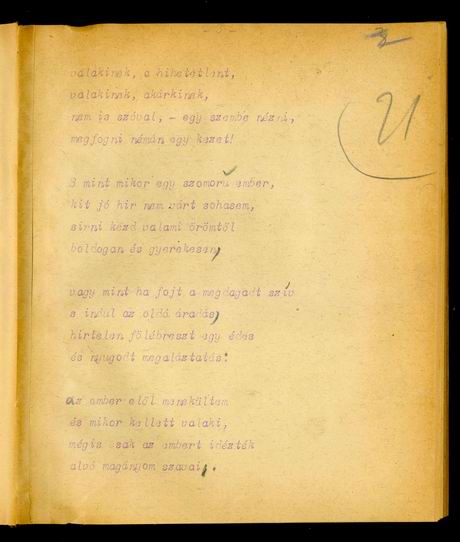 2
21
valakinek, a hihetetlent,
valakinek, akárkinek,
nem is szóval, – egy szembe nézni,
megfogni némán egy kezet!
S mint mikor egy szomorú ember,
kit jó hir nem várt sohasem,
sirni kezd valami örömtől
boldogan és gyerekesen,
vagy mint ha fojt a megdagadt szív
s indul az oldó áradás,
hirtelen fölébreszt egy édes
és nyugodt megaláztatás:
az ember elől menekültem
és mikor kellett valaki,
mégis csak az embert idézték
alvó magányom szavai.